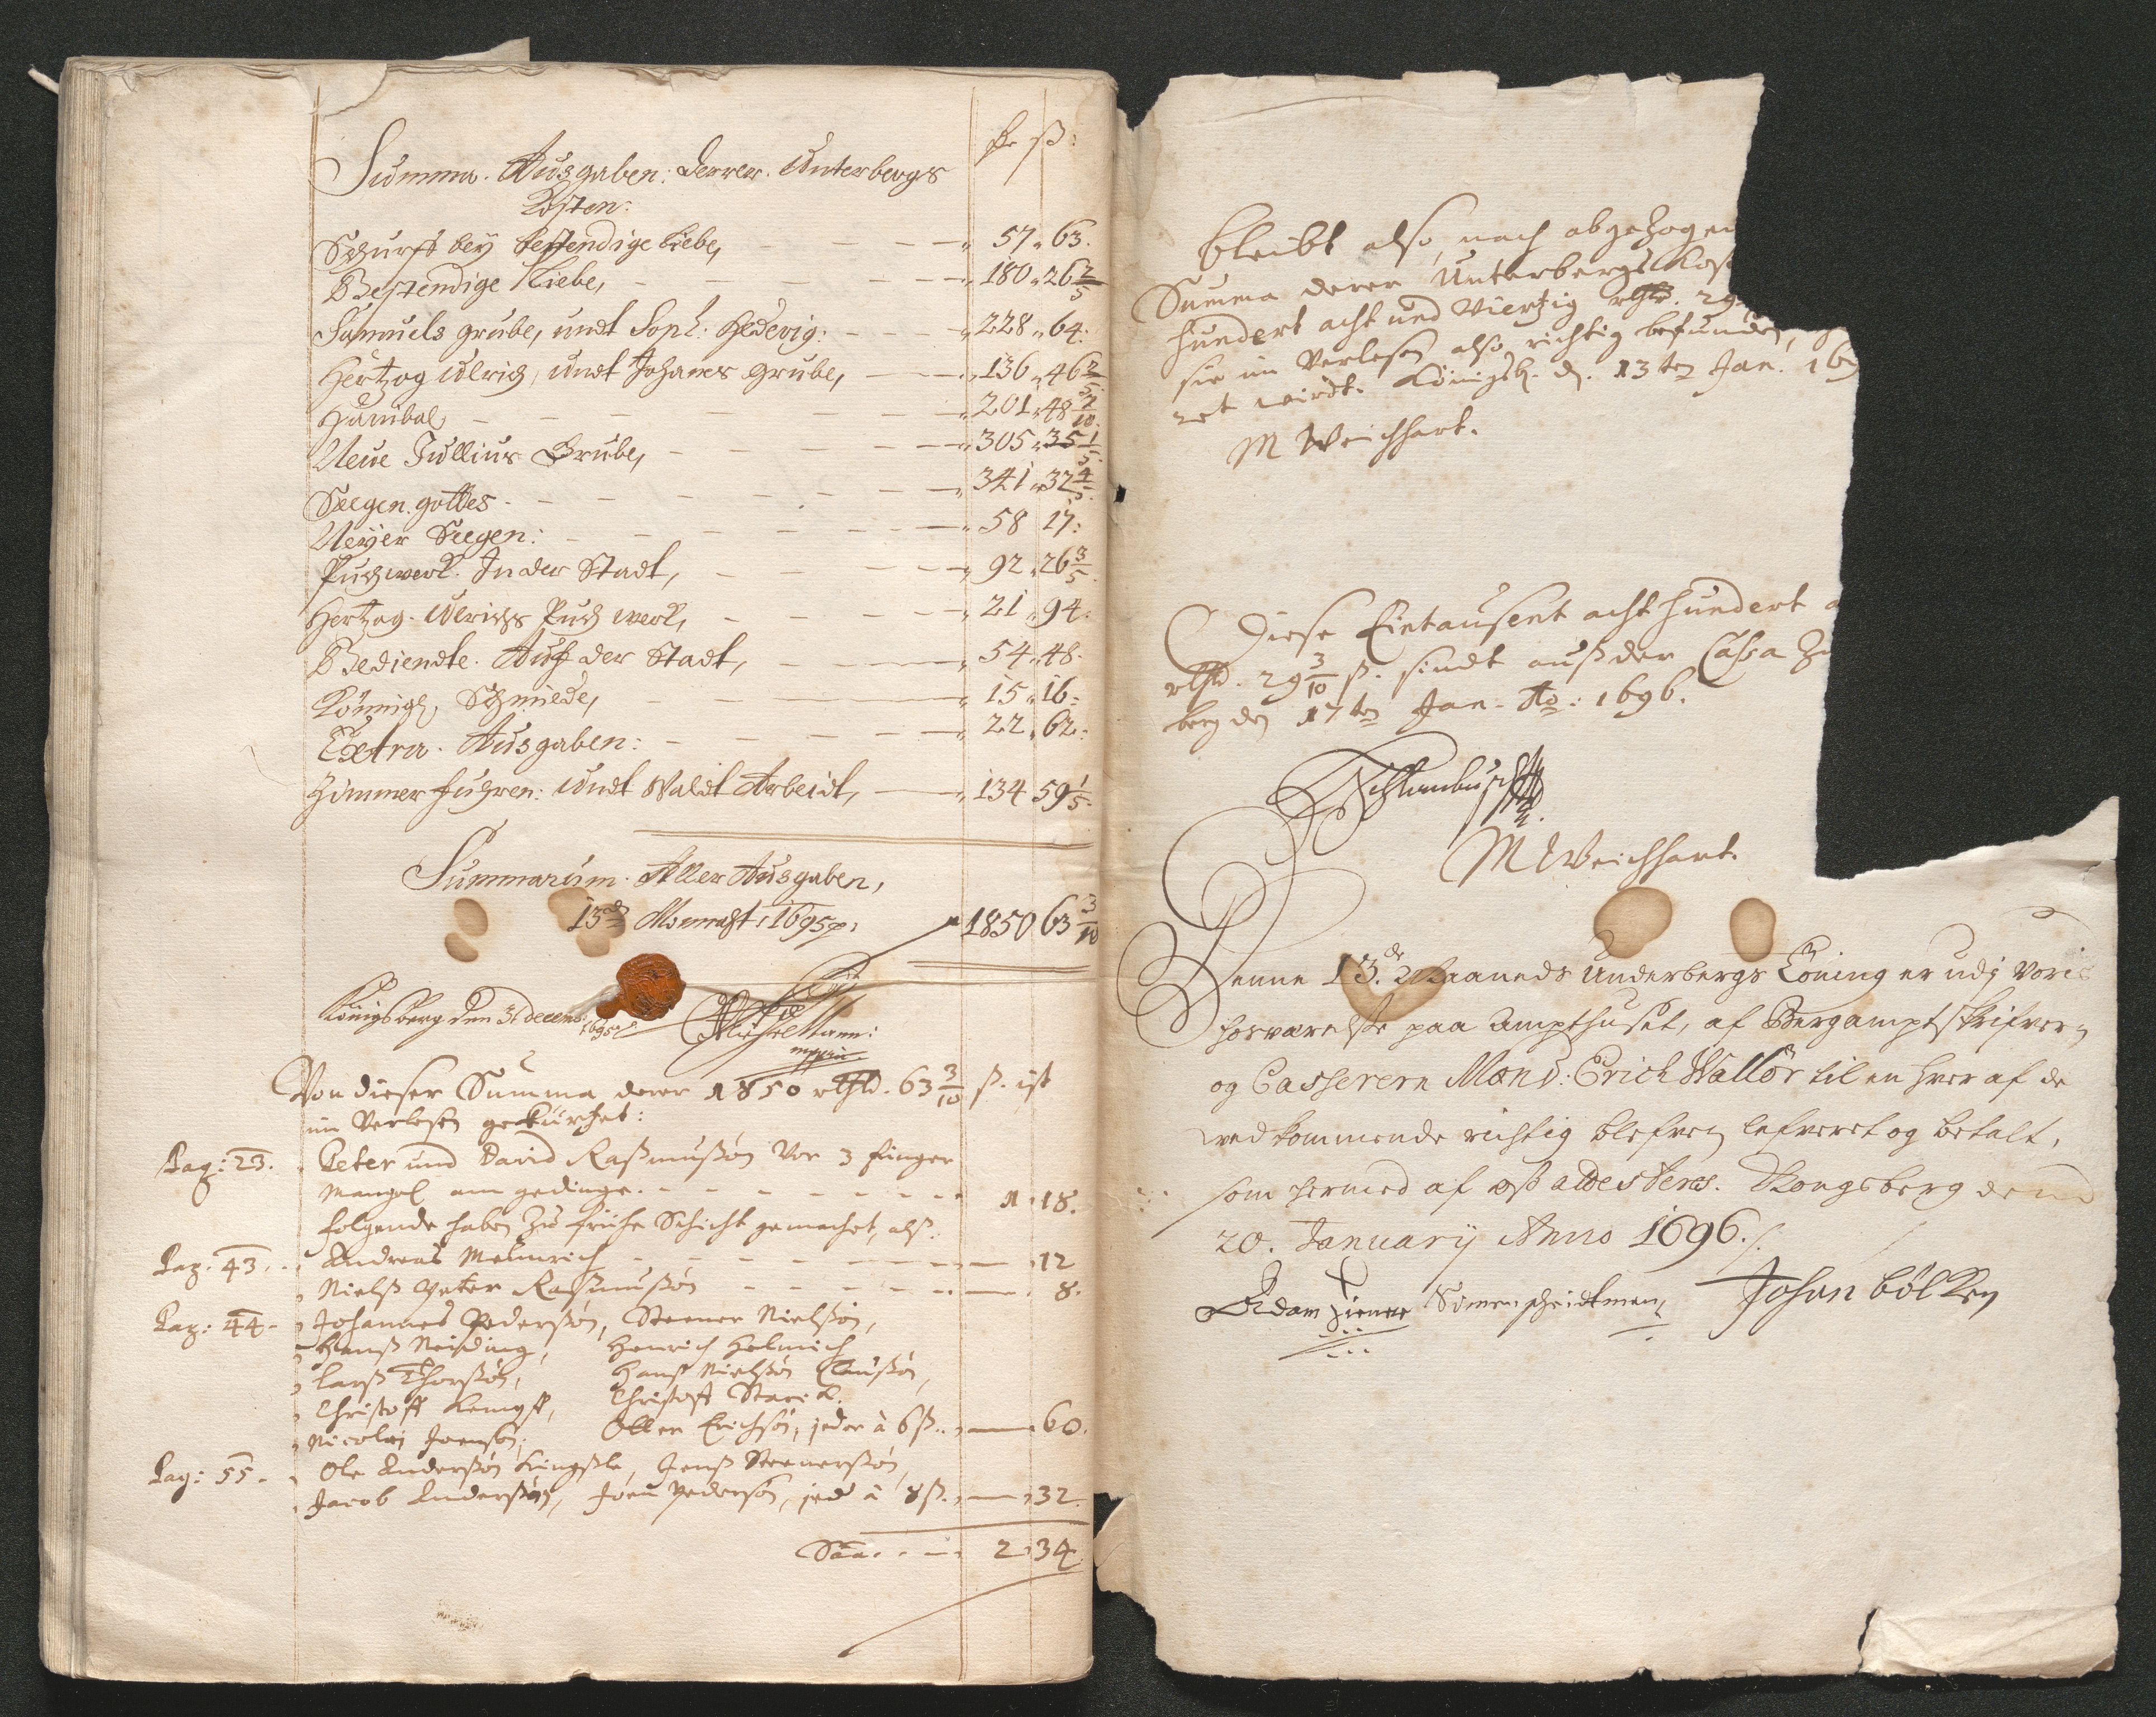 Rthlr ß:
Summa. Ausgaben: derer. Unterbergs
Kosten:
Schurff bey bestendige Liebe, 57 „ 63.
Bestendige Liebe, 180 „ 26 2/5
Samuels grube, undt Soph: Hedevig: 228 „ 64:
Hertzog Ulrich, undt Johanes grube, 136 „ 46 2/5
Hanibal, 201 „ 48 7/10.
Neue Jullius Grube, 305 „ 35 1/5.
Seegen. gottes. 341 „ 32 4/5.
Neüer Seegen: 58 17:
Puchwerk. In der Stadt, 92 „ 26 3/5.
Hertzog. Ulrichs Puch werk, 21 „ 94:
Bediendte. Auf der Stadt, 54 „ 48.
Königl. Schmiede, 15 „ 16:
Extra. Ausgaben: 22 „ 62:
Zimmer fuhren: undt Waldt Arbeidt, 134 59 1/5.
Summarum. Aller Ausgaben,
13de Monnaht, 1695 1850 63 3/10
Königsberg den 31 decemb:
1695
mppria
Von dieser Summa derer 1850 rthlr. 63 3/10 ß. ist
im Verlesen gekürtzet:
Pag: 23. Peter und David Raßmußøn Vor 3 finger
Mangel am gedinge. 1 „ 18.
folgende haben zu frühe Schicht gemachet, alß.
Pag: 43. Andreas Meinrich 12
Nielß Peter Raßmußøn 8.
Pag: 44. Johannes Pederßøn, Steener Nielßøn,
Hanß Neißding, Henrich Helmich
Larß Thorßøn, Hanß Nielßøn Clausøn,
Christoff Kempff, Christoff Starck.
Nicolai Joensøn, Oller Erichsøn, jeder à 6 ß. 60.
Pag: 55. Ole Anderßøn Kingßle, Jenß Steenerßøn,
Jacob Anderßøn, Joen Pedersøn, jed à 8 ß. 32.
Sũa 2 „ 34.
bleibt also, nach abgezogen
Summa derer Unterbergs Kos
hundert acht und Viertzig rthlr. 29
sie im Verlesen also richtig befunden,
ret wirdt. Königsb. d. 13ten Jan. 169
M Weichhart.
Diese Eintausent acht hundert
rthlr. 29 3/10 ß. sindt auß der Cassa Zu
berg den 17ten Jan. Ao: 1696.
M Weichhart.
Denne 13de Maaneds Underbergs Löning er udj voris
hosværelse paa Ampthuset, af Bergamptskrifver
og Casserern Mons: Erich Wallör til en hver af de
ved kommende richtig blefven lefveret og betalt,
som hermed af oß attesteres. Kongsberg dend
20. Januarij Anno 1696.
Adam Ziener Simen scheidtman, Johan bölken